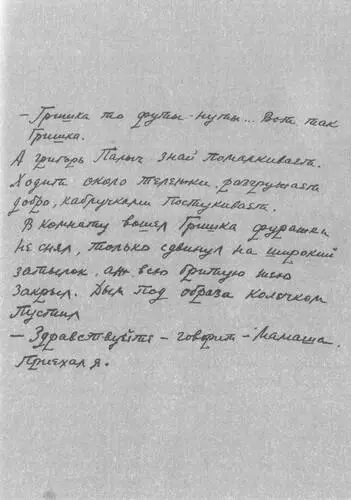 – Гришка то футы-нуты... Вот так
Гришка.
А григорь Палыч знай помалкивает.
Ходит около тележки, разгружает
добро, кабручками постукивает.
В комнату вошел Гришка фуражки
не снял, только сдвинул на широкий
затылок, аж всю бритую шею
закрыл. Дым под образа колечком
пустил
– Здравствуйте – говорит – Мамаша.
Приехал я.